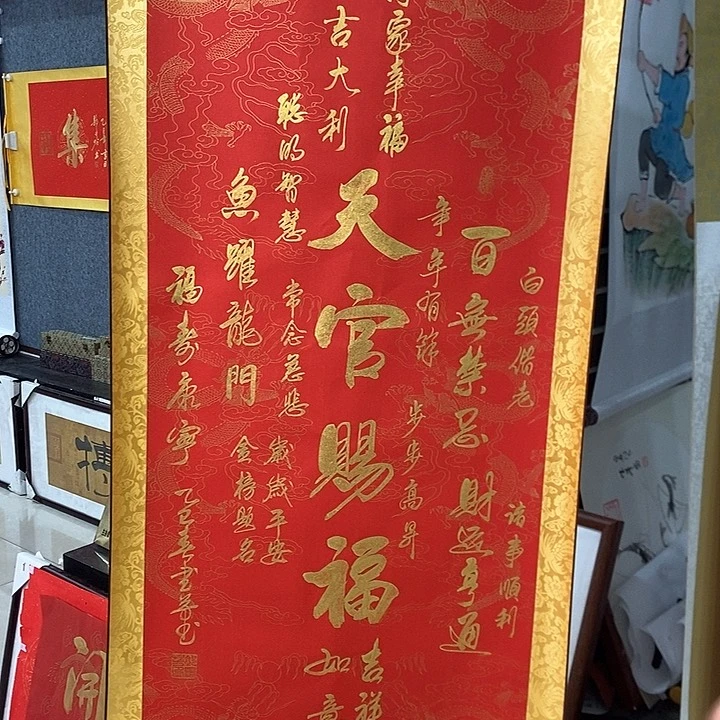 白頭偕老
諸事順利
百無禁忌
財运亨通
年年有餘
步步高昇
家幸福
天官賜福
吉祥
如意
吉大利
聪明智慧
常念慈悲
歲歲平安
金榜題名
魚躍龍門
福寿康寧
乙巳年
集
搏
開